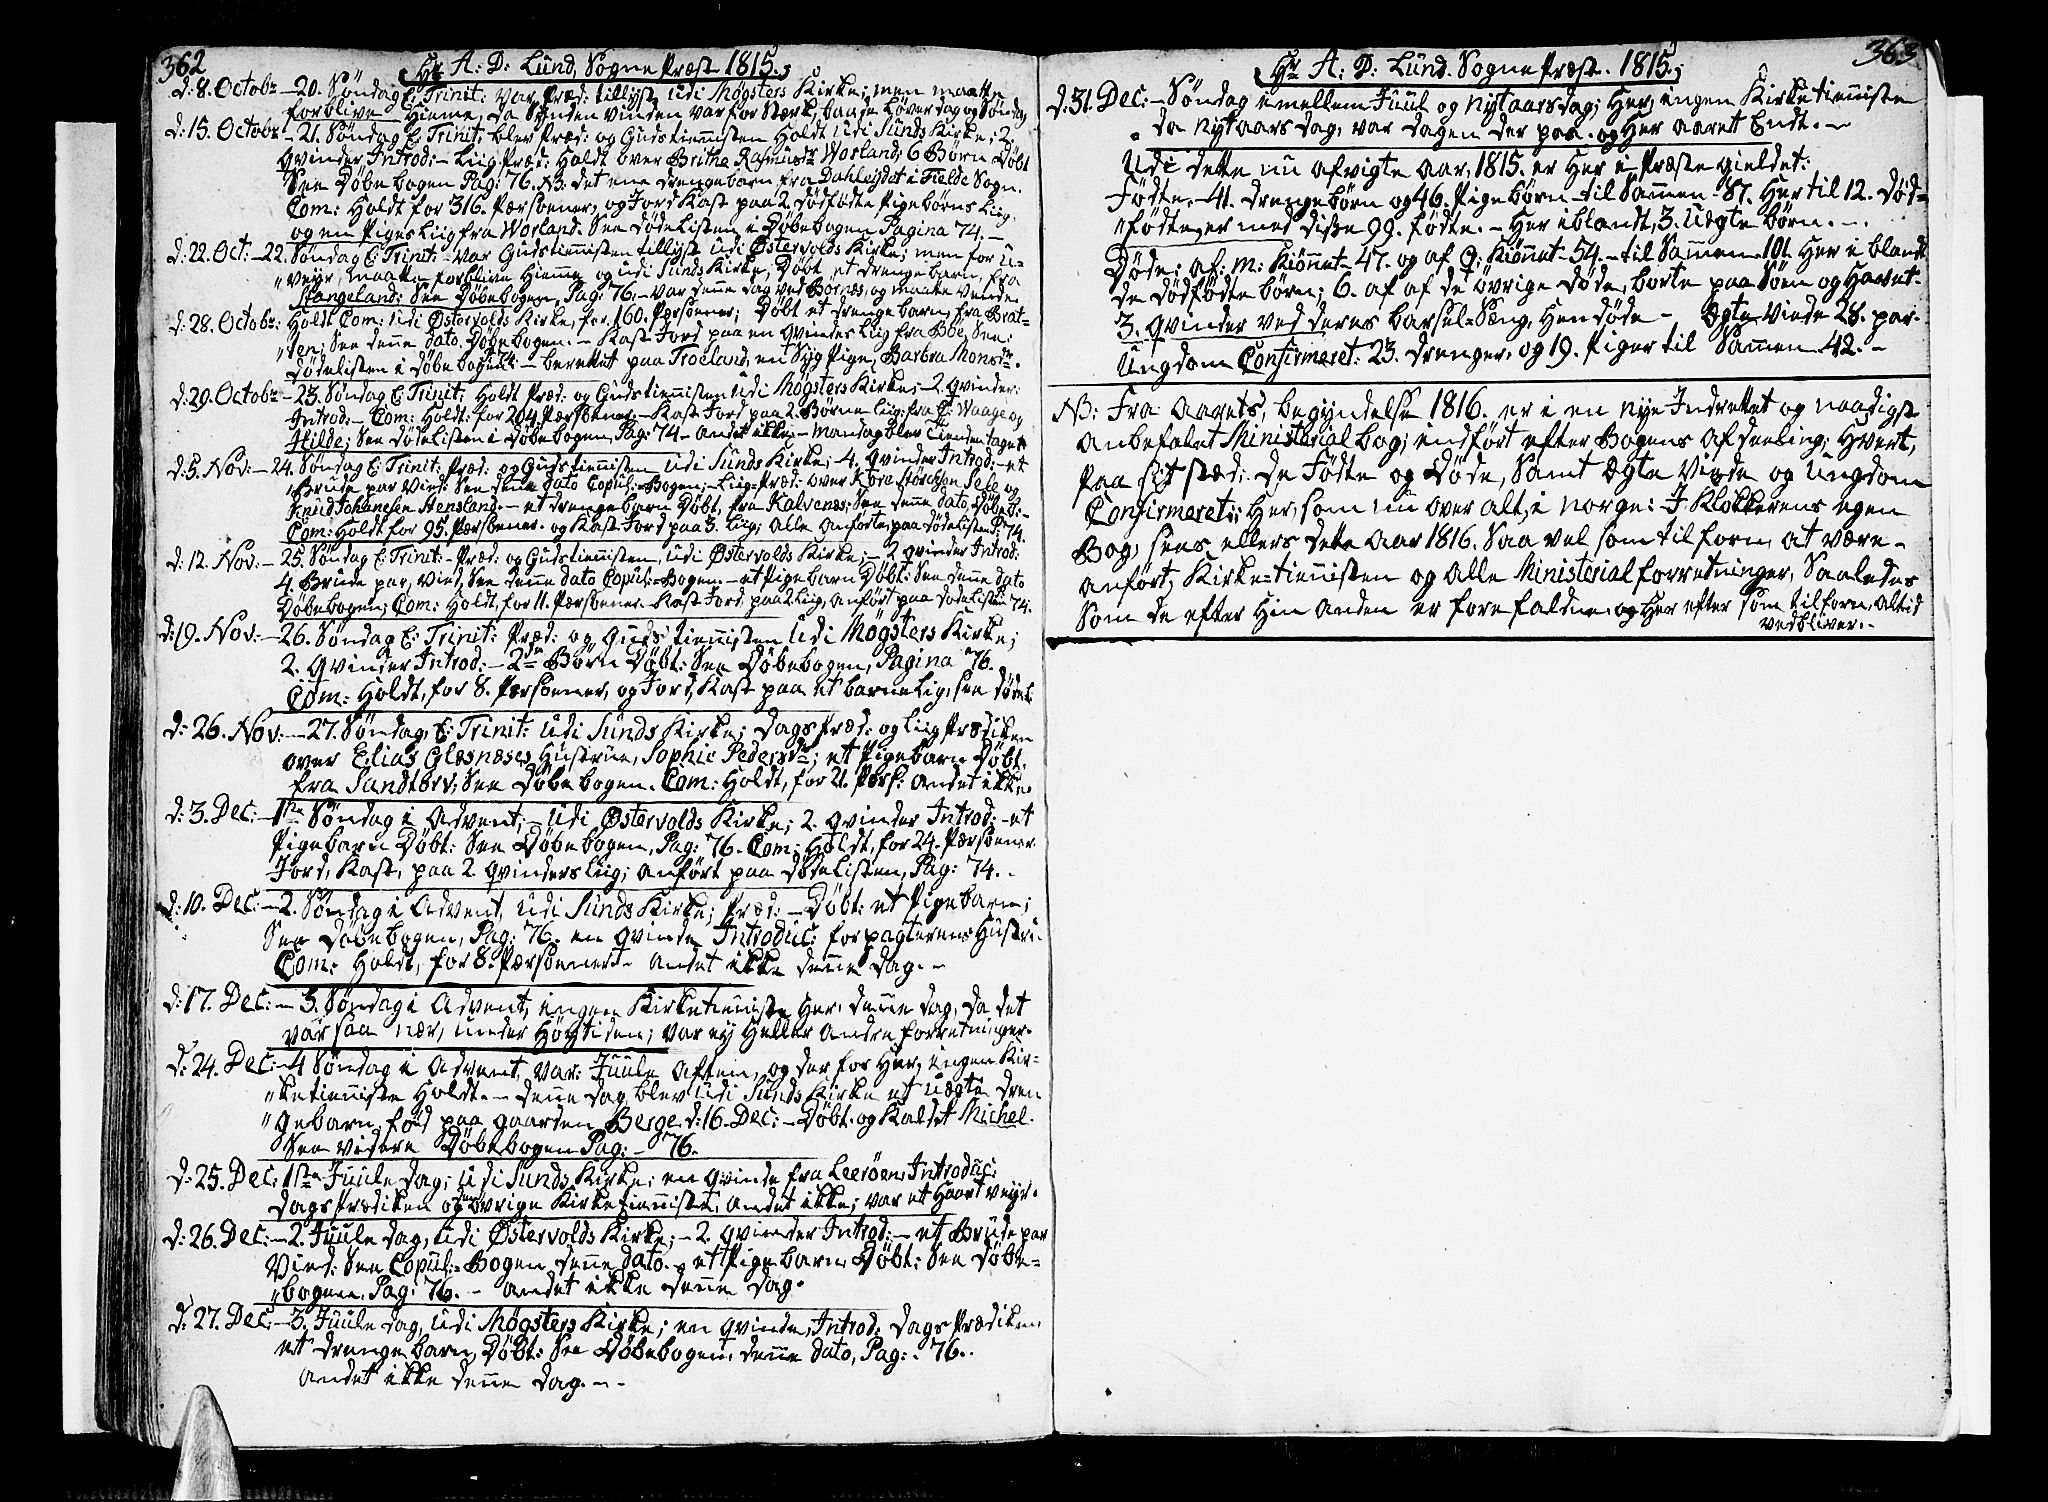 362
Hr A: D: Lund, Sogne Præst 1815.
d: 8. Octobr – 20. Søndag E: Trinit: Var Præd: tillyst udi Møgsters Kirke; men maatte
forblive Hieme, da Synden vinden var for Stærk, baade Løverdag og Søndag
d: 15. Octobr – 21. Søndag E: Trinit: blev Præd: og Gudstiennisten Holdt udi Sunds Kirke; 2
Qvinder Introd: – Liig-Præd: Holdt over Brithe Rasmusdr Worland; 6 Børn Døbt
See Døbebogen Pag: 76. NB. det ene drengebarn fra Dahleydet i Fielde Sogn.
Com: Holdt for 316. Persoener, og Jord Kast paa 2. dødfødte Pigebørns Liig,
og en Piges Liig fra Worland. See dødelisten i Døbebogen Pagina 74. –
d: 22. Oct: – 22. Søndag E: Trinit: – Var Gudstiennisten tillyst udi Østervolds Kirke; men for U-
"veyr, maatte forblive Hieme, og udi Sunds Kirke, Døbt, et drengebarn, fra
Stangeland: See Døbebogen, Pag: 76. – var denne dag ved Bornæs, og maatte vende.
d: 28. Octobr: Holdt Com: udi Østervolds Kirke, for 160. Persoener; Døbt et drengebarn, fra Brat-
"ten, See denne dato, Døbebogen. – Kast Jord paa en Qvindes Liig fra Bøe, See:
Dødelisten i Døbebogen 74 – berettet paa Troeland, en Syg Pige, Barbra Monsdr.
d: 29. Octobr – 23. Søndag E: Trinit: Holdt Præd: og Gudstiennisten udi Møgsters Kirke; – 2. Qvinder:
Introd: – Com: Holdt: for 204 Persoener. – Kast Jord paa 2. Børne Liig: fra L: Waage og
Hilde; See Dødelisten i Døbebogen, Pag: 74 – andet ikke; – Mandag blev Tienden taget.
d: 5. Nov: – 24. Søndag E: Trinit: Præd: og Gudstiennisten udi Sunds Kirke; 4. Qvinder Introd: – et
Brude par Vied: See denne dato Copul: Bogen; – Liig-Præd: over Kore Størchsen Tele og
Knud Johanesen Stensland. – et drengebarn Døbt, fra Kalvenes; See denne dato, Døbeb: –
Com: Holdt for 95. Persoener. og Kast Jord paa 3. Liig; alle anførte paa dødelisten P: 74.
d: 12. Nov: – 25. Søndag E: Trinit: – Præd: og Gudstiennisten, udi Østervolds Kirke; – 2 qvinder Introd:
4. Brude par, Vied, See denne dato Copul: Bogen. – et Pigebarn Døbt: See denne dato
Døbebogen; Com: Holdt, for 11. Persoener. Kast Jord paa 2 Liig, anført paa Dødelisten 74.
d: 19. Nov: – 26. Søndag E: Trinit: Præd: og Gudstiennisten udi Møgsters Kirke;
2. Qvinder Introd: – 2de Børn Døbt: See Døbebogen, Pagina 76.
Com: Holdt, for 8. Persoener, og Jord, Kast paa et barne Liig, see Dødel:
d: 26. Nov: – 27. Søndag, E: Trinit: udi Sunds Kirke; Dags Præd: og Liig Prædiken
over Elias Glæsnæses Hustrue, Sophie Pedersdr; et Pigebarn Døbt.
fra Sandtorv; See Døbebogen. Com: Holdt, for 21. Pers: andet ikke.
d: 3. Dec: – 1ste Søndag i Advent; – udi Østervolds Kirke; 2. qvinder Introd: – et
Pigebarn Døbt: See Døbebogen, Pag: 76. Com: Holdt, for 24. Persoener.
Jord, Kast, paa 2. qvinders Liig; anført paa dødelisten, Pag: 74. –
d: 10. Dec: – 2. Søndag i Advent, udi Sunds Kirke; Præd: – Døbt: et Pigebarn;
See Døbebogen, Pag: 76. en qvinde Introduc: forpagterens Hustru.
Com: Holdt, for 8. Persoener. – andet ikke denne dag. –
d: 17. Dec: – 3. Søndag i Advent, ingen Kirketienniste Her, denne dag, da det
var saa nær, under Høytiden; var ey Heller andre forretninger.
d: 24. Dec: – 4 Søndag i Advent, var: Juule Aften, og der for Her, ingen Kir-
"ketienniste Holdt. – denne dag, blev udi Sunds Kirke et uægte dren
"gebarn, fød paa gaarden Berge, d: 16. Dec: – Døbt. og Kaldet Michel.
See videre Døbebogen Pag: – 76.
d: 25. Dec: 1ste Juule dag; udi Sunds Kirke; en qvinde fra Leerøen, Introduc:
dags Prædiken og den øvrige Kirketienniste, andet ikke; var et Haart veyr.
d: 26. Dec: – 2. Juule dag, udi Østervolds Kirke; – 2. qvinder Introd: – et Brude par
Vied: See Copul: Bogen denne dato. – et Pigebarn, Døbt: See Døbe-
"bogen, Pag: 76. – andet ikke denne dag.
d: 27. Dec: – 3. Juule dag, udi Møgsters Kirke; en qvinde, Introd: dags Prædiken
et drengebarn, Døbt: See Døbebogen, denne dato, Pag: 76.
andet ikke denne dag. – –
363
Hr A: D: Lund. Sogne Præst. 1815;
d: 31. Dec: – Søndag imellem Juul og Nytaarsdag; Her, ingen Kirketienniste
" da Nytaars dag, var dagen der paa. og Her aaret Endt. –
Udi dette nu afvigte Aar, 1815. er Her i Præste gieldet:
Fødte – 41. drengebørn og 46. Pigebørn – til Samen – 87. Her til 12. Død-
"fødte, er med disse 99. fødte. – Her iblandt, 3. Uægte børn. –
Døde; af: M: Kiønnet – 47. og af Q: Kiønnet – 54. – til Samen – 101. Her i blandt
de dødfødte børn; 6. af af de øvrige Døde, borte paa Søen og Havet.
3. Qvinder ved deres barsel-Sæng, Hendøde – Ægte Viede 28. par.
Ungdom Confirmeret: 23. drenger, og 19. Piger til Samen 42. –
NB: Fra Aarets, begyndelse 1816. er i en nye Indrettet og naadigst
anbefalet Ministerial bog; indført efter Bogens Afdeeling; Hvert,
Paa sit stæd: De Fødte og Døde, Samt Ægte Viede og Ungdom
Confirmeret; Her, som nu over alt, i Norge: I Klokkerens egen
Bog, sees ellers dette Aar 1816. Saa vel som tilforn, at være –
anført, Kirke-tiennisten og alle Ministerial forretninger, Saaledes
Som de efter Hin anden er forefaldne, og Her efter som tilforn, altid
vedbliver. –